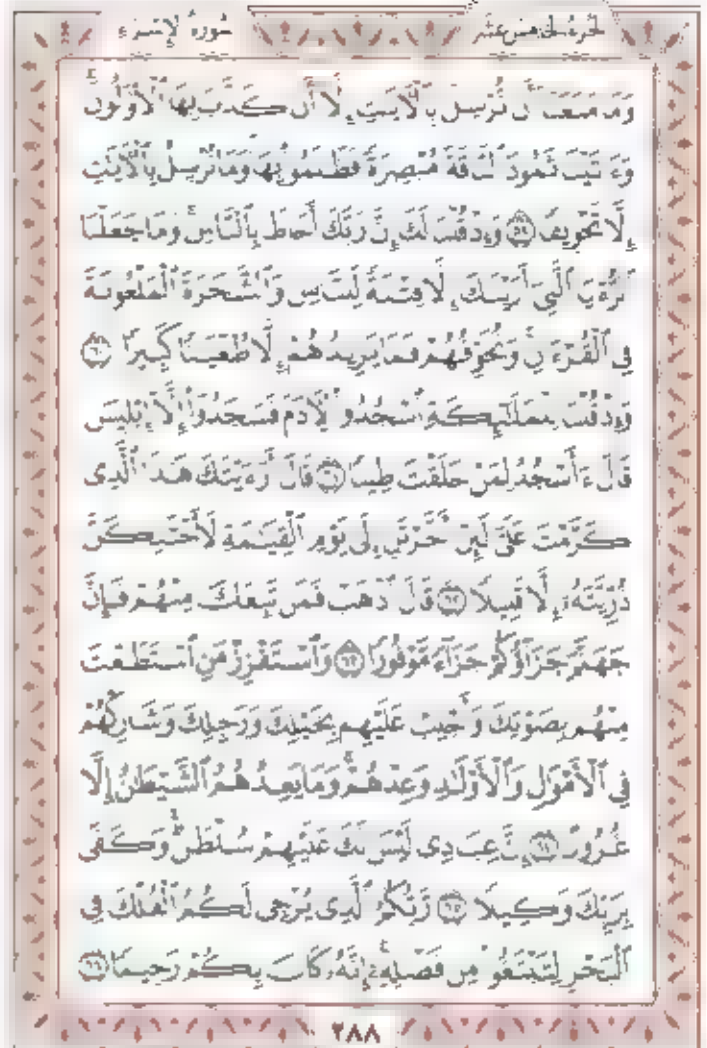 سورة الإسراء الجزء الخامس عشر
وَمَا مَنَعَنَآ أَن نُّرْسِلَ بِٱلْءَايَـٰتِ إِلَّآ أَن كَذَّبَ بِهَا ٱلْأَوَّلُونَ ۚ
وَءَاتَيْنَا ثَمُودَ ٱلنَّاقَةَ مُبْصِرَةً فَظَلَمُوا۟ بِهَا ۚ وَمَا نُرْسِلُ بِٱلْءَايَـٰتِ
إِلَّا تَخْوِيفًا ٥٩ وَإِذْ قُلْنَا لَكَ إِنَّ رَبَّكَ أَحَاطَ بِٱلنَّاسِ ۚ وَمَا جَعَلْنَا
ٱلرُّءْيَا ٱلَّتِىٓ أَرَيْنَـٰكَ إِلَّا فِتْنَةً لِّلنَّاسِ وَٱلشَّجَرَةَ ٱلْمَلْعُونَةَ
فِى ٱلْقُرْءَانِ ۚ وَنُخَوِّفُهُمْ فَمَا يَزِيدُهُمْ إِلَّا طُغْيَـٰنًا كَبِيرًا ٦٠
وَإِذْ قُلْنَا لِلْمَلَـٰٓئِكَةِ ٱسْجُدُوا۟ لِـَٔادَمَ فَسَجَدُوٓا۟ إِلَّآ إِبْلِيسَ
قَالَ ءَأَسْجُدُ لِمَنْ خَلَقْتَ طِينًا ٦١ قَالَ أَرَءَيْتَكَ هَـٰذَا ٱلَّذِى
كَرَّمْتَ عَلَىَّ لَئِنْ أَخَّرْتَنِ إِلَىٰ يَوْمِ ٱلْقِيَـٰمَةِ لَأَحْتَنِكَنَّ
ذُرِّيَّتَهُۥٓ إِلَّا قَلِيلًا ٦٢ قَالَ ٱذْهَبْ فَمَن تَبِعَكَ مِنْهُمْ فَإِنَّ
جَهَنَّمَ جَزَآؤُكُمْ جَزَآءً مَّوْفُورًا ٦٣ وَٱسْتَفْزِزْ مَنِ ٱسْتَطَعْتَ
مِنْهُم بِصَوْتِكَ وَأَجْلِبْ عَلَيْهِم بِخَيْلِكَ وَرَجِلِكَ وَشَارِكْهُمْ
فِى ٱلْأَمْوَٰلِ وَٱلْأَوْلَـٰدِ وَعِدْهُمْ ۚ وَمَا يَعِدُهُمُ ٱلشَّيْطَـٰنُ إِلَّا
غُرُورًا ٦٤ إِنَّ عِبَادِى لَيْسَ لَكَ عَلَيْهِمْ سُلْطَـٰنٌ ۚ وَكَفَىٰ
بِرَبِّكَ وَكِيلًا ٦٥ رَّبُّكُمُ ٱلَّذِى يُزْجِى لَكُمُ ٱلْفُلْكَ فِى
ٱلْبَحْرِ لِتَبْتَغُوا۟ مِن فَضْلِهِۦٓ ۚ إِنَّهُۥ كَانَ بِكُمْ رَحِيمًا ٦٦
٢٨٨